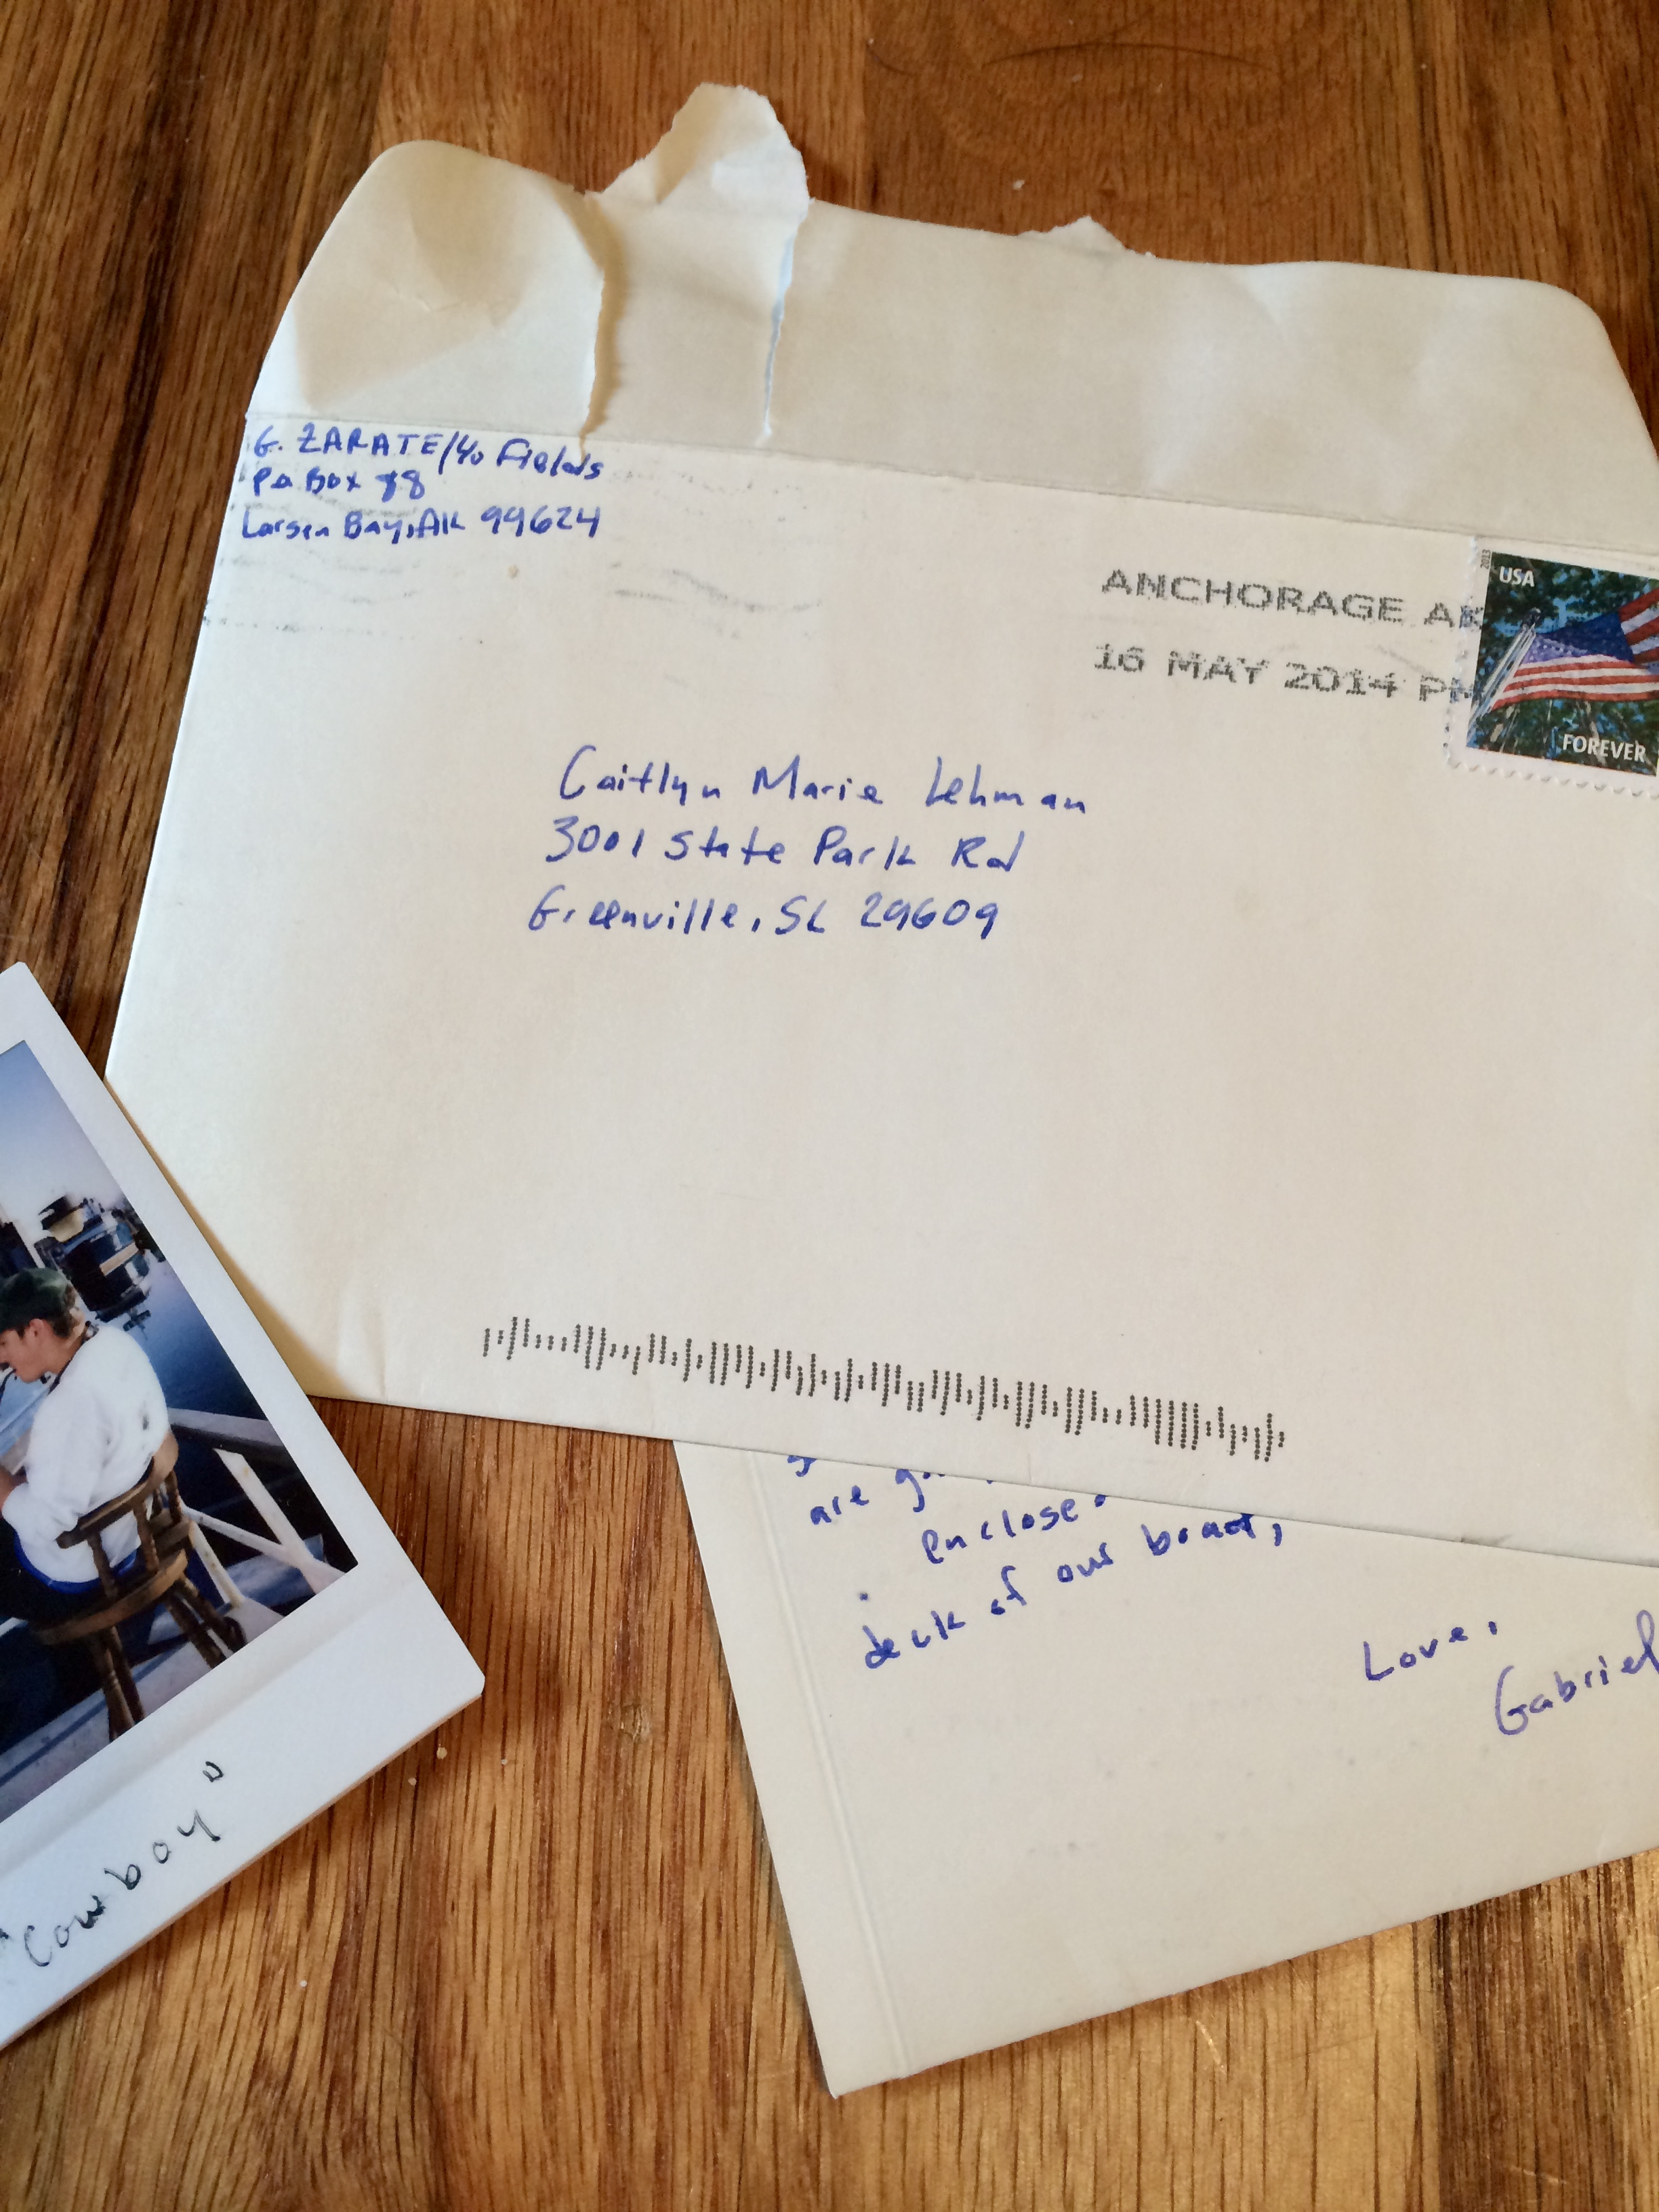 G. ZARATE/℅ Fields
Po Box 78
Larsen Bay, AK 99624
ANCHORAGE AK
16 MAY 2014 PM
2013
USA
FOREVER
Caitlyn Marie Lehman
3001 State Park Rd
Greenville, SC 29609
are
enclosed
deck of our boat,
Love,
Gabriel
"Cowboy"